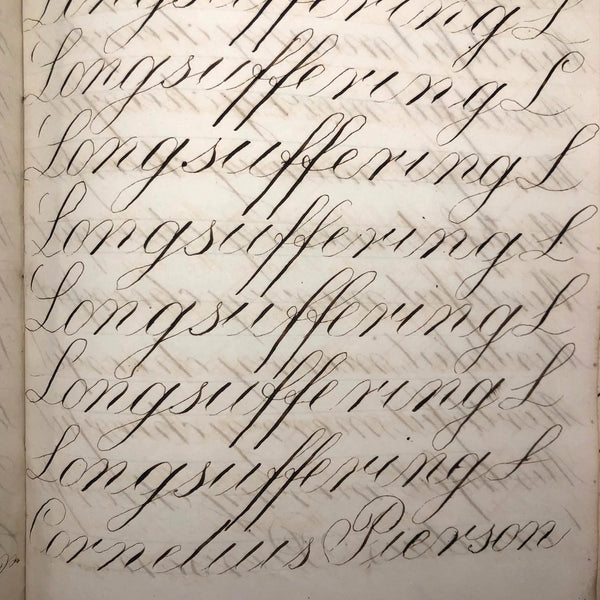 Longsuffering L
Longsuffering L
Longsuffering L
Longsuffering L
Longsuffering L
Longsuffering L
Longsuffering L
Cornelius Pierson